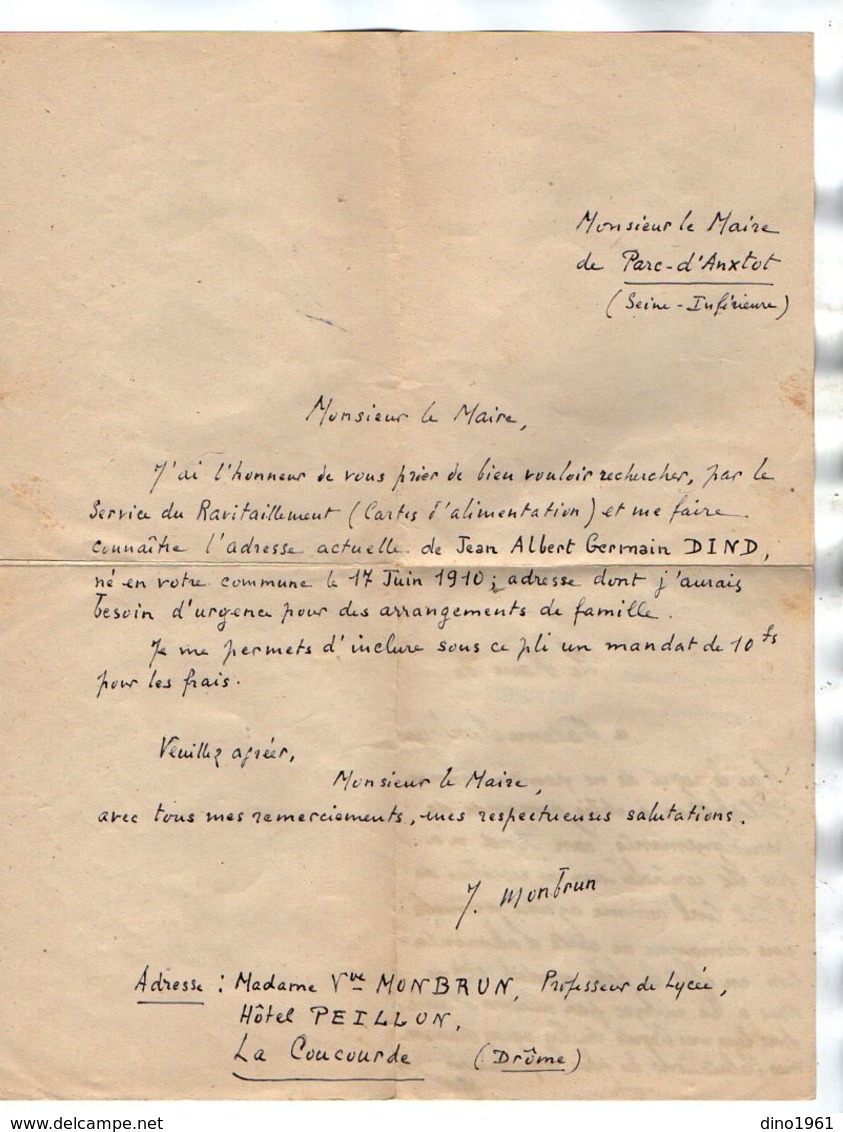 Monsieur le Maire
de Parc-d'Anxtot
(Seine-Inférieure)
Monsieur le Maire,
J'ai l'honneur de vous prier de bien vouloir rechercher, par le
Service du Ravitaillement (Cartes d'alimentation) et me faire
connaître l'adresse actuelle de Jean Albert Germain DIND,
né en votre commune le 17 Juin 1910; adresse dont j'aurais
besoin d'urgence pour des arrangements de famille.
Je me permets d'inclure sous ce pli un mandat de 10 fs
pour les frais.
Veuillez agréer,
Monsieur le Maire,
avec tous mes remerciements, mes respectueuses salutations.
J. Monbrun
Adresse : Madame Vve MONBRUN, Professeur de Lycée,
Hôtel PEILLON,
La Coucourde (Drôme)
dino1961